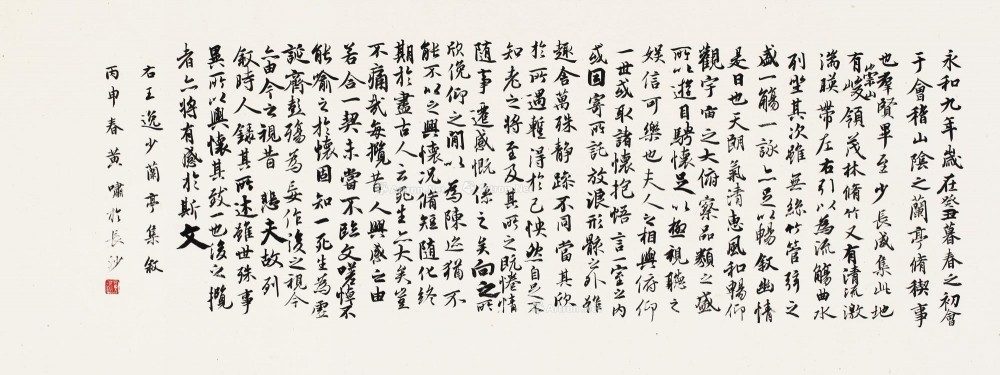 永和九年歲在癸丑暮春之初會
于會稽山陰之蘭亭脩稧事
也羣賢畢至少長咸集此地
有崇山峻領茂林脩竹又有清流激
湍暎帶左右引以為流觴曲水
列坐其次雖無絲竹管弦之
盛一觴一詠亦足以暢敘幽情
是日也天朗氣清惠風和暢仰
觀宇宙之大俯察品類之盛
所以遊目騁懷足以極視聽之
娛信可樂也夫人之相與俯仰
一世或取諸懷抱悟言一室之內
或因寄所託放浪形骸之外雖
趣舍萬殊靜躁不同當其欣
於所遇暫得於己怏然自足不
知老之將至及其所之既惓情
隨事遷感慨係之矣向之所
欣俛仰之閒以為陳迹猶不
能不以之興懷況脩短隨化終
期於盡古人云死生亦大矣豈
不痛哉每攬昔人興感之由
若合一契未嘗不臨文嗟悼不
能喻之於懷固知一死生為虛
誕齊彭殤為妄作後之視今
亦由今之視昔 悲夫故列
敘時人錄其所述雖世殊事
異所以興懷其致一也後之攬
者亦將有感於斯文
右王逸少蘭亭集敘
丙申春黃嘯於長沙